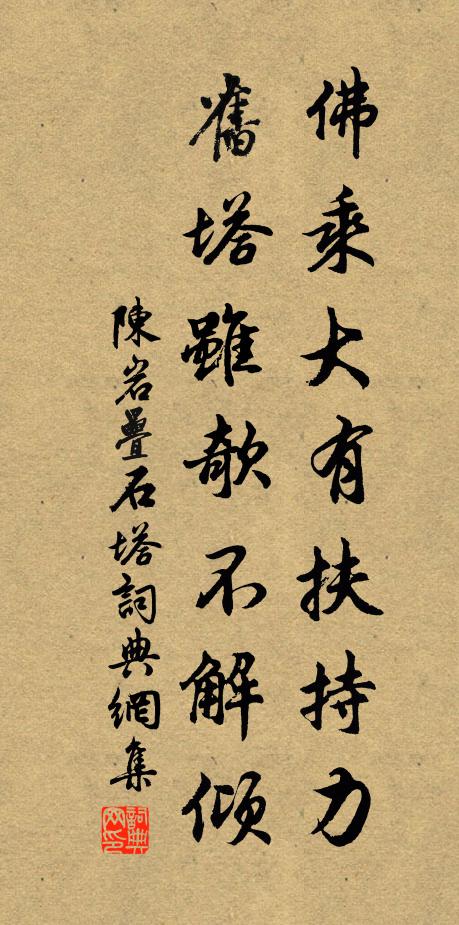 佛乘大有扶持力
舊塔雖欹不解傾
陳岩疊石塔詞典網集
詞典網印